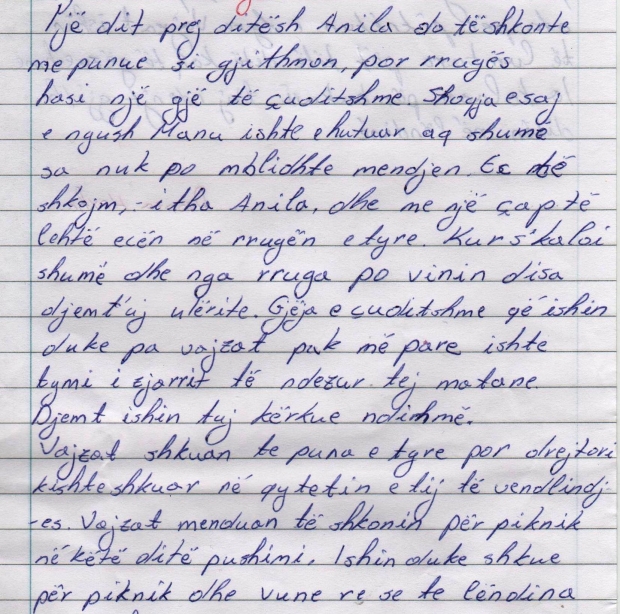 Një dit prej ditësh Anila do të shkonte
me punue si gjithmon, por rrugës
hasi një gjë të çuditshme Shoqja e saj
e ngush Manu ishte e hutuar aq shumë
sa nuk po mblidhte mendjen. Ec të
shkojm,- i tha Anila, dhe me një çap të
lehtë ecën në rrugën e tyre. Kur s'kaloi
shumë dhe nga rruga po vinin disa
djemt'uj ulërite. Gjëja e çuditshme që ishin
duke pa vajzat pak më pare ishte
tymi i zjarrit të ndezur tej matane.
Djemt ishin tuj kërkue ndihmë.
Vajzat shkuan te puna e tyre por drejtori
kishte shkuar në qytetin e tij të vendlindj
-es. Vajzat menduan të shkonin për piknik
në këtë ditë pushimi. Ishin duke shkue
për piknik dhe vune re se te lëndina